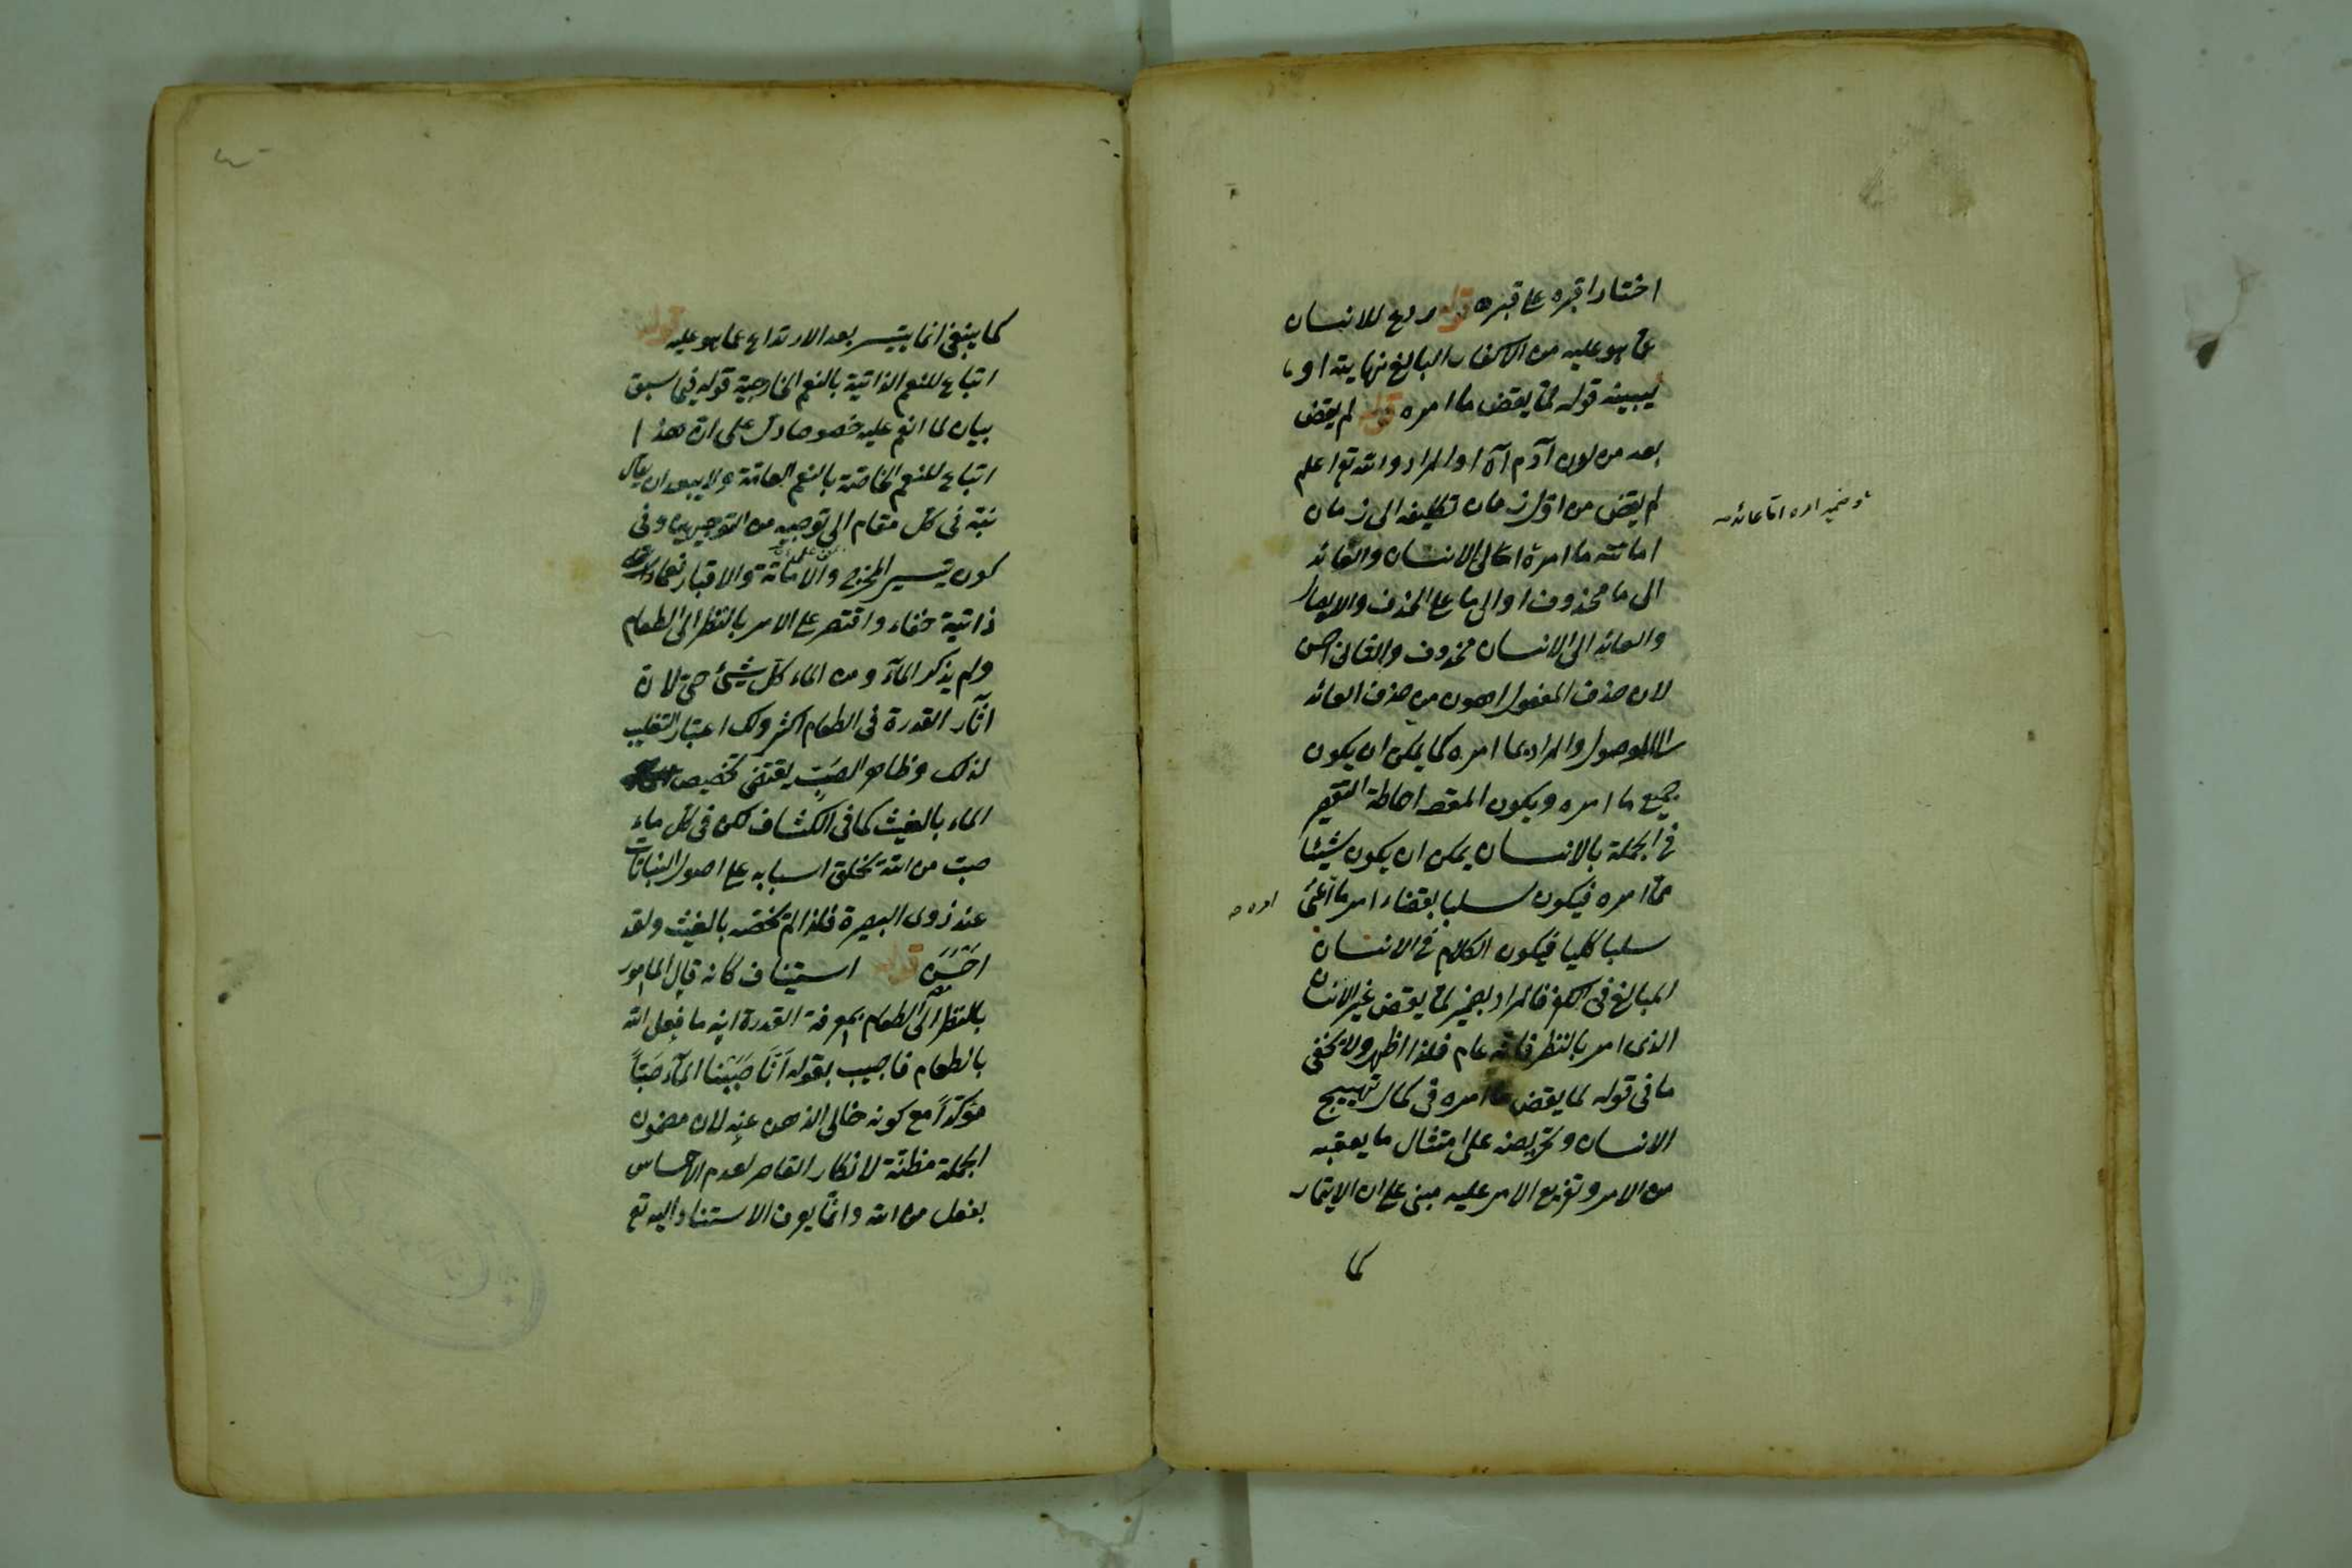 اختار اقبره على قبره قوله ردع للانسان
عما هو عليه من الكفران البالغ نهايته او ما
يبينه قوله لما يقض ما امره قوله لم يقض
بعد من لدن آدم آه او المراد والله تع اعلم
لم يقض من اول زمان تكليفه الى زمان
اماتته ما امره اما الى الانسان والعائد
الى ما محذوف او الى ما على الحذف والايصال
والعائد الى الانسان محذوف والثانى احسن
لان حذف المفعول اهون من حذف العائد
الى الموصول والمراد بما امره كما يمكن ان يكون
جميع ما امره ويكون المقص احاطة التقصير
فى الجملة بالانسان يمكن ان يكون شيئا
مما امره فيكون سلبا لقضاء امر ما اعنى
سلبا كليا فيكون الكلام فى الانسان
المبالغ فى الكفر فالمراد بضمير لما يقض غير الانسان
الذى امر بالنظر فانه عام فلذا اظهر ولا يخفى
ما فى قوله لما يقض ما امره فى كمال تهييج
الانسان وتحريضه على امتثال ما يعقبه
من الامر وتفريع الامر عليه مبنى على ان الايتمار
كما
وضمير امره اما عائد
كما ينبغى انما يتيسر بعد الارتداع عما هو عليه قوله
اتباع للنعم الذاتية بالنعم الخارجية قوله فيما سبق
بيان لما انعم عليه خصوصا دل على ان هذا
اتباع للنعم الخاصة بالنعم العامة ولا يبعد ان يقال
نبه فى كل مقام الى توجيه من التوجيهين وفى
كون تيسير المخرج والاماتة والاقبار نعما
ذاتية خفاء واقتصر على الامر بالنظر الى الطعام
ولم يذكر الماء ومن الماء كل شيئ حى لان
آثار القدرة فى الطعام اكثر ولك اعتبار التغليب
لذلك وظاهر الصب يقتضى تخصيص
الماء بالغيث كما فى الكشاف لكن فى كل ماء
صب من الله بخلق اسبابه على اصول النباتات
عند ذوى البصيرة فلذا لم يخصه بالغيث ولقد
احسن قوله استيناف كانه قال المامور
بالنظر الى الطعام لمعرفة القدرة اينه ما فعل الله
بالطعام فاجيب بقوله انا صببنا الماء صبا
مؤكدا مع كونه خالى الذهن عنه لان مضمون
الجملة مظنة لانكار القاصر لعدم الاحساس
بفعل من الله وانما يعرف الاستناد اليه تع